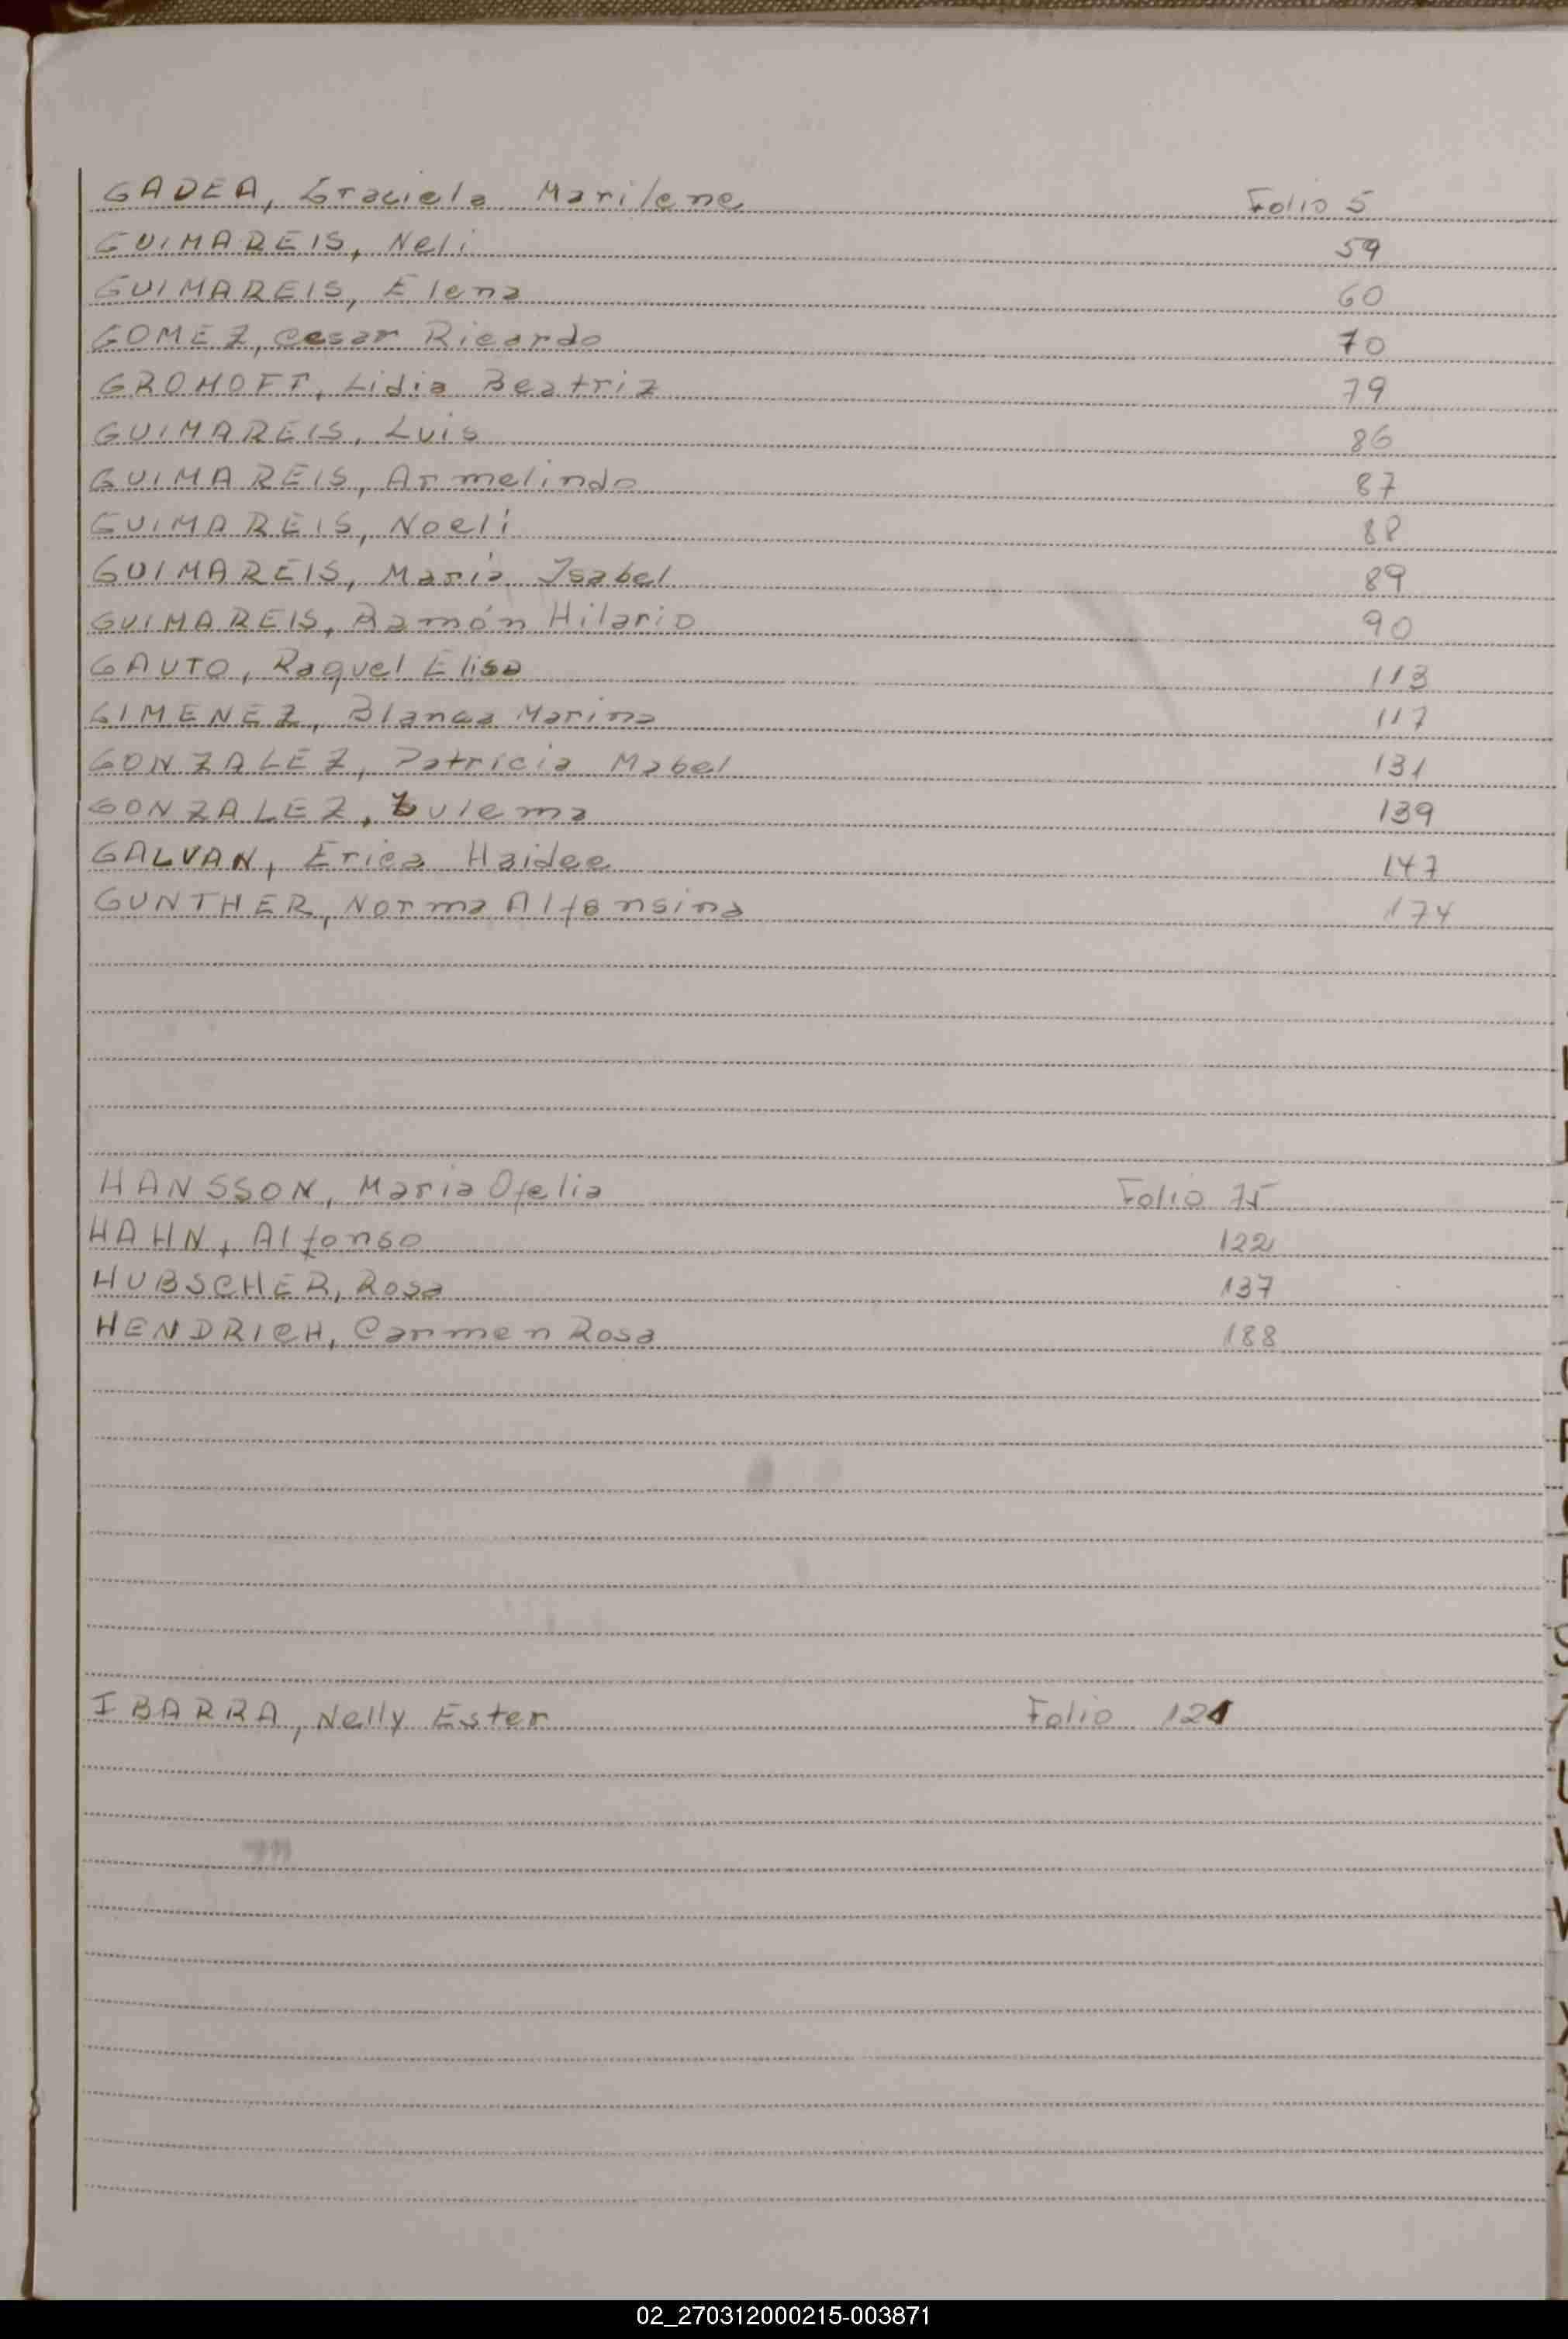 GADEA, Graciela Marilene Folio 5
GUIMAREIS, Neli 59
GUIMAREIS, Elena 60
GOMEZ, Cesar Ricardo 70
GROHOFF, Lidia Beatriz 79
GUIMAREIS, Luis 86
GUIMAREIS, Armelindo 87
GUIMAREIS, Noeli 88
GUIMAREIS, Maria Isabel 89
GUIMAREIS, Ramón Hilario 90
GAUTO, Raquel Elisa 113
GIMENEZ, Blanca Marina 117
GONZALEZ, Patricia Mabel 131
GONZALEZ, Zulema 139
GALVAN, Erica Haidee 147
GUNTHER, Norma Alfonsina 174
HANSSON, Maria Ofelia Folio 75
HAHN, Alfonso 122
HUBSCHER, Rosa 137
HENDRICH, Carmen Rosa 188
IBARRA, Nelly Ester Folio 121
02_270312000215-003871